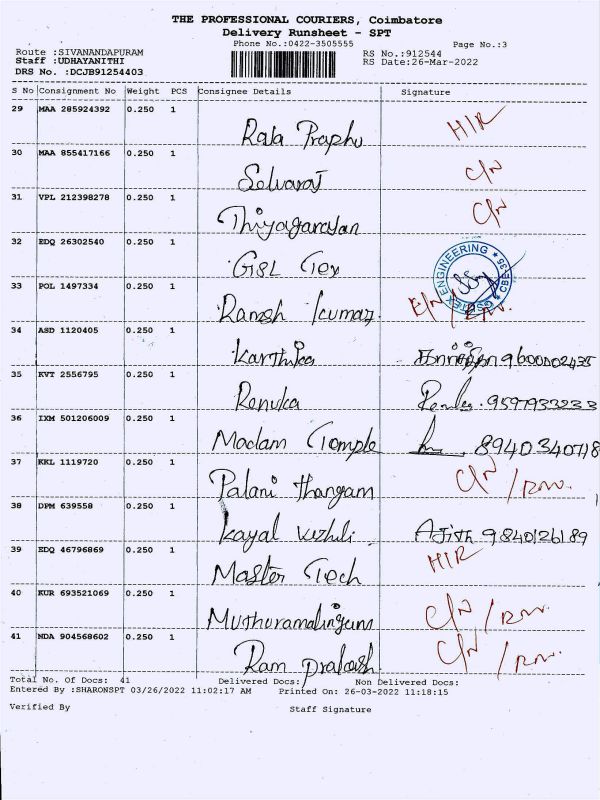 THE PROFESSIONAL COURIERS, Coimbatore
Delivery Runsheet - SPT
Phone No.:0422-3505555 Page No.:3
Route :SIVANANDAPURAM RS No.:912544
Staff :UDHAYANITHI RS Date:26-Mar-2022
DRS No. :DCJB91254403
S No Consignment No Weight PCS Consignee Details Signature
29 MAA 285924392 0.250 1
Raja Praphu H/R
30 MAA 855417166 0.250 1
Selvaraj C/N
31 VPL 212398278 0.250 1
Thiyagarajan C/N
32 EDQ 26302540 0.250 1
GSL Tex
ENGINEERING CBE-35
33 POL 1497334 0.250 1
Ramesh Kumar.
34 ASD 1120405 0.250 1
Karthika 9600002435
35 KVT 2556795 0.250 1
Renuka 9597933233
36 IXM 501206009 0.250 1
Madam Temple 8940340718
37 KKL 1119720 0.250 1
Palani thangam C/N
38 DPM 639558 0.250 1
Kayal Vizhili Ajith 9840126189
39 EDQ 46796869 0.250 1
Master Tech H/R
40 KUR 693521069 0.250 1
Muthuramalingam C/N
41 NDA 904568602 0.250 1
Ram prakash C/N
Total No. Of Docs: 41 Delivered Docs: Non Delivered Docs:
Entered By :SHARONSPT 03/26/2022 11:02:17 AM Printed On: 26-03-2022 11:18:15
Verified By Staff Signature